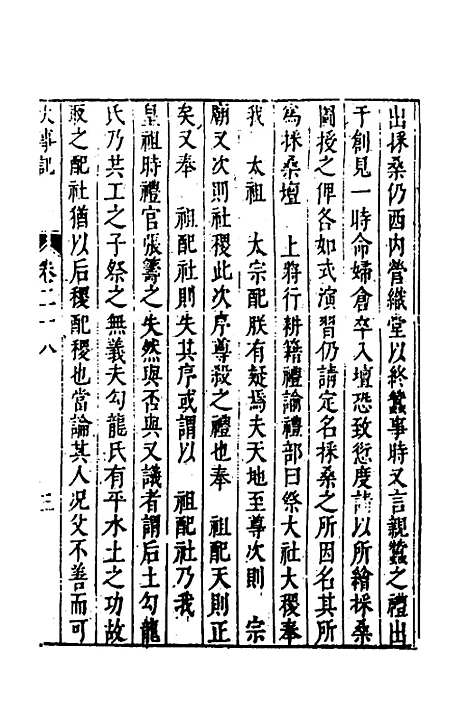 出採桑仍西內營織堂以終蠶事時又言親蠶之禮出
于創見一時命婦倉卒入壇恐致愆度請以所繪採桑
圖授之俾各如式演習仍請定名採桑之所因名其所
爲採桑壇　上將行耕籍禮諭禮部曰祭大社大稷奉
我　太祖　太宗配朕有疑焉夫天地至尊次則　宗
廟又次則社稷此次序尊殺之禮也奉　祖配天則正
矣又奉　祖配社則失其序或謂以　祖配社乃我
皇祖時禮官張籌之失然與否與又議者謂后土勾龍
氏乃共工之子祭之無義夫勾龍氏有平水土之功故
取之配社猶以后稷配稷也當論其人况父不善而可
大事記　卷二十八　三